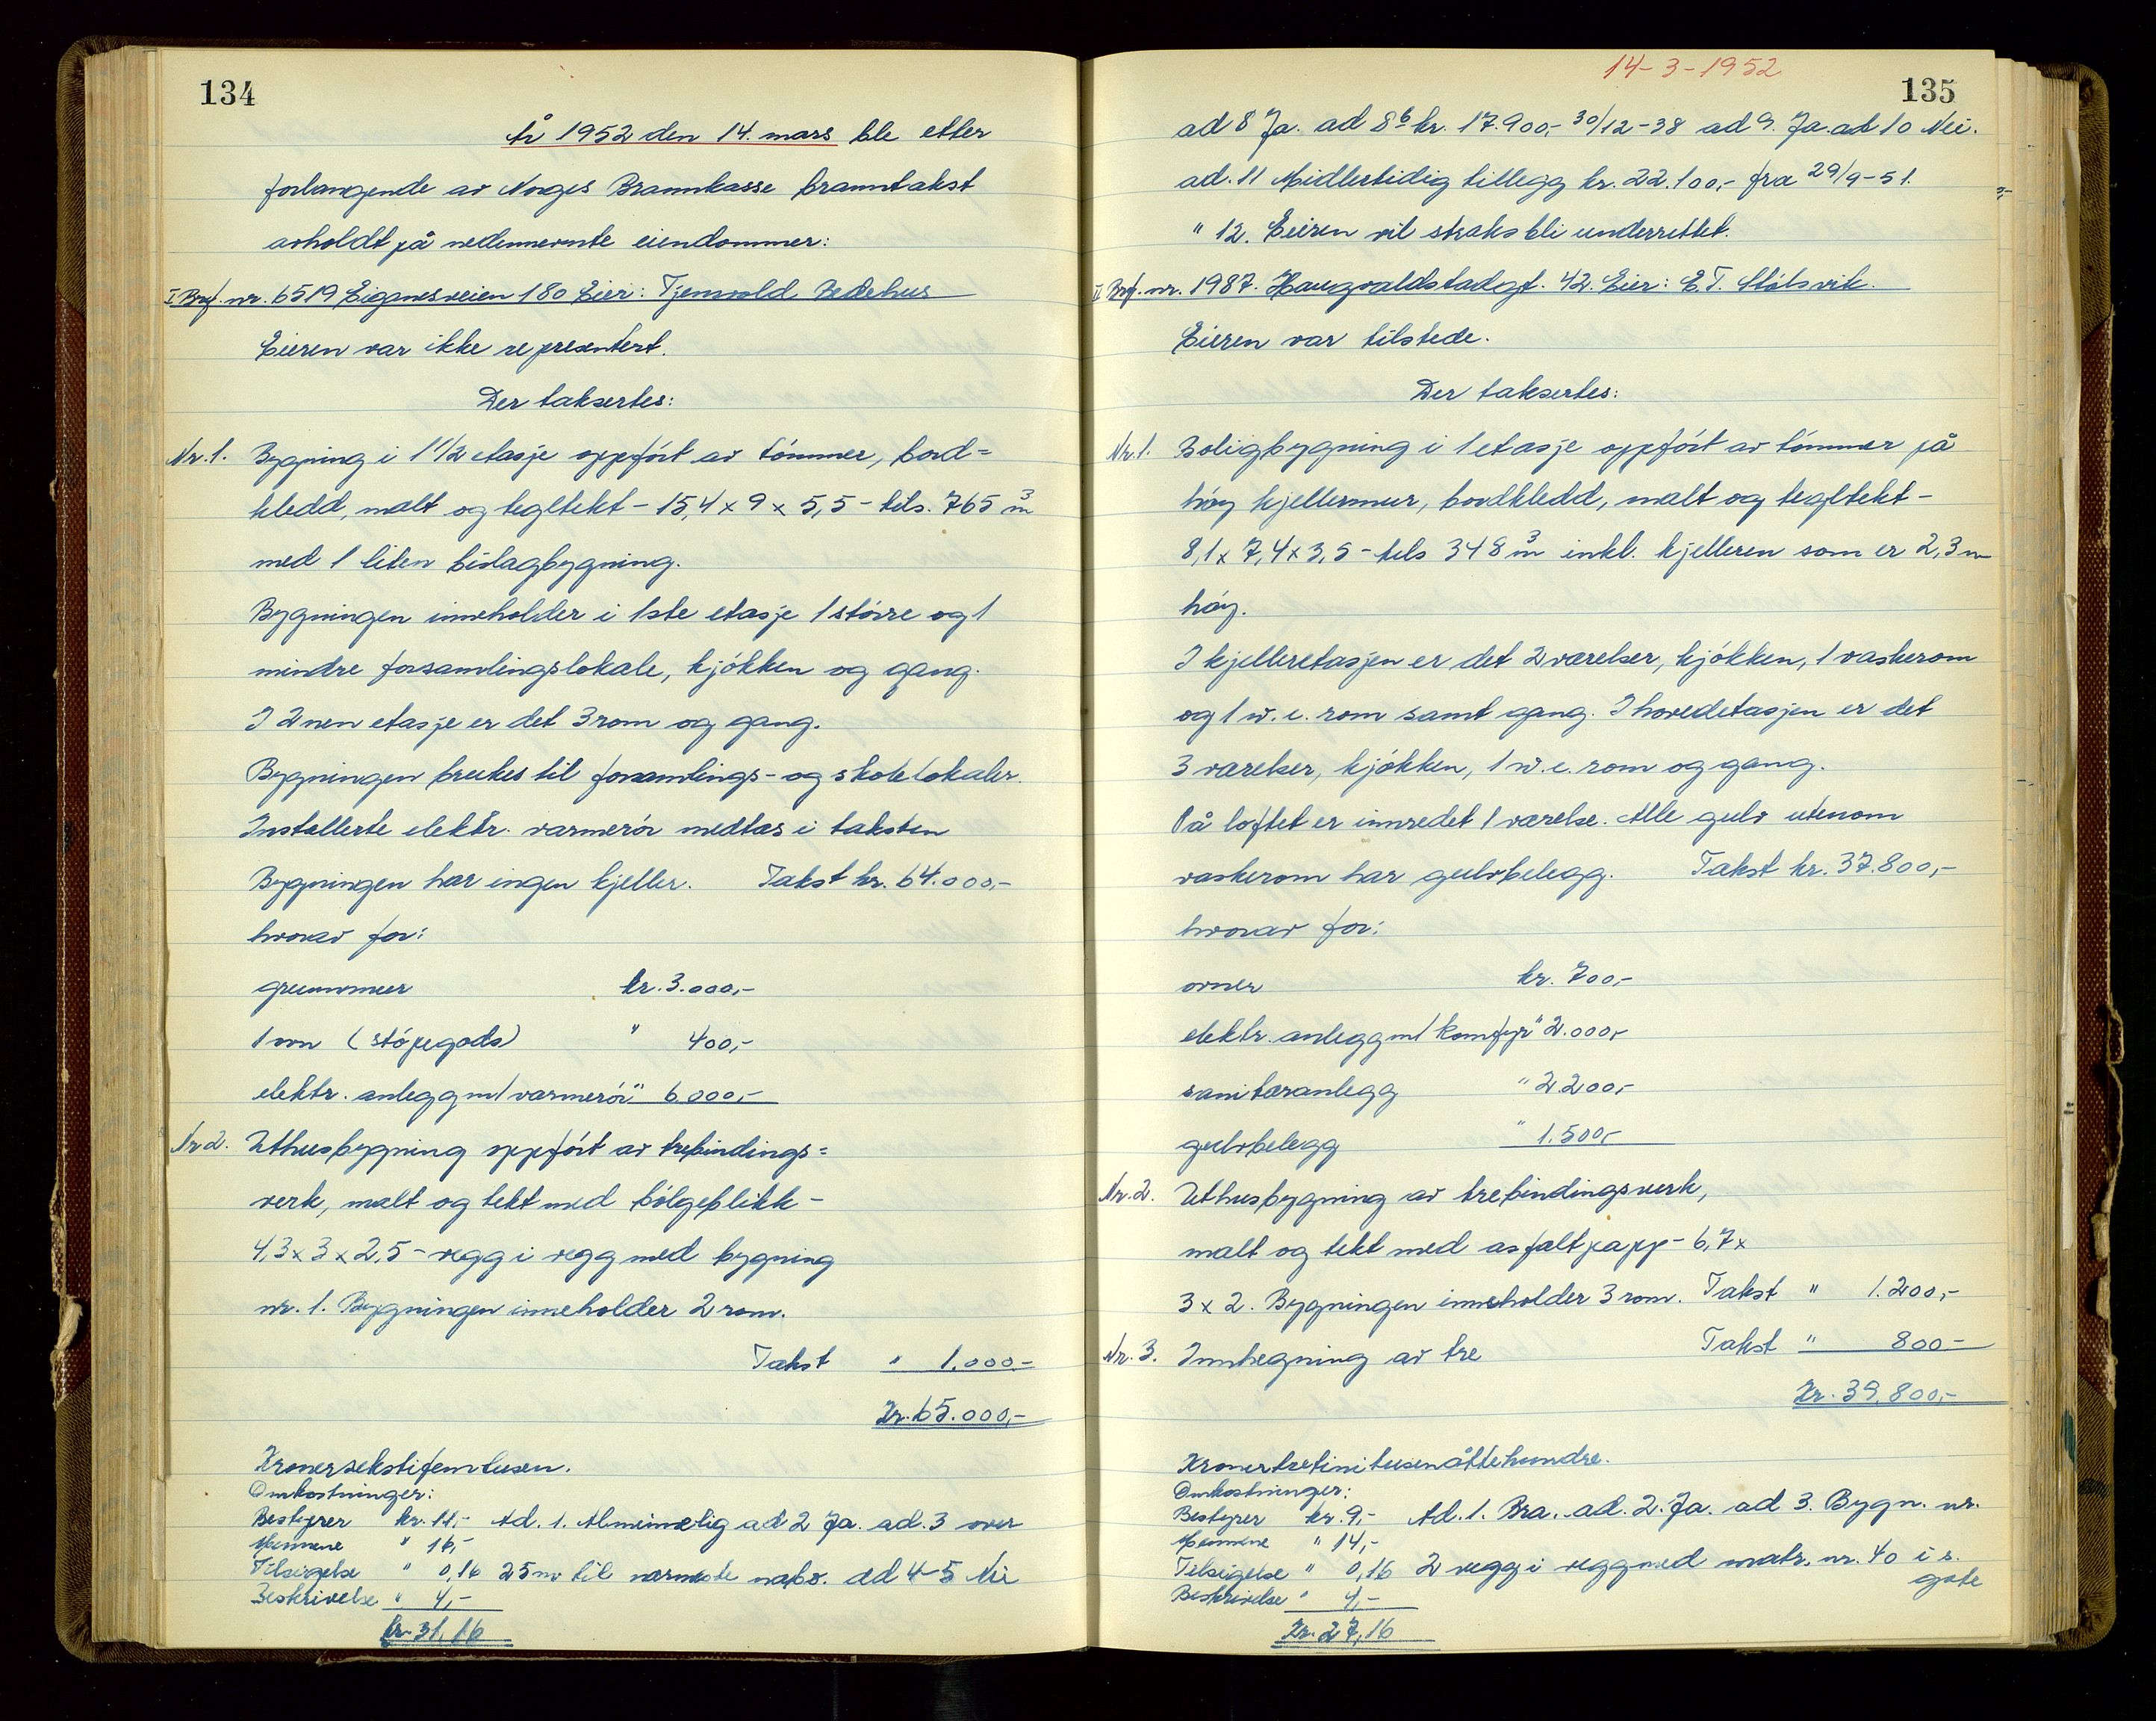 134
År 1952 den 14. mars ble etter
forlangende av Norges Brannkasse branntakst
avholdt på nedennevnte eiendommer:
I Brf. nr. 6519 Eiganesveien 180 Eier: Tjensvold Bedehus
Eieren var ikke representert.
Der taksertes:
Nr. 1. Bygning i 1 1/2 etasje oppført av tømmer, bord=
kledd, malt og tegltekt - 15,4 x 9 x 5,5 - tils. 765 m³
med 1 liten bislagbygning.
Bygningen inneholder i 1ste etasje 1 større og 1
mindre forsamlingslokale, kjøkken og gang.
I 2nen etasje er det 3 rom og gang.
Bygningen brukes til forsamlings- og skolelokaler.
Installerte elektr. varmerør medtas i taksten
Bygningen har ingen kjeller. Takst kr. 64.000,-
hvorav for:
grunnmur kr. 3.000,-
1 ovn (støpegods) " 400,-
elektr. anlegg m/varmerør " 6.000,-
Nr 2. Uthusbygning oppført av trebindings=
verk, malt og tekt med bølgeblikk -
4,3 x 3 x 2,5 - vegg i vegg med bygning
nr. 1. Bygningen inneholder 2 rom.
Takst " 1.000-
Kr. 65.000,-
Kroner sekstifemtusen.
Omkostninger:
Bestyrer kr. 11,- Ad. 1. Alminnelig ad 2 Ja. ad. 3 over
Mennene " 16,-
Tilsigelse " 0,16 25 m til nærmeste nabo. ad 4-5 Nei
Beskrivelse " 4,-
kr. 31,16
14-3-1952
135
ad 8 Ja. ad 8b kr. 17.900,- 30/12-38 ad 9. Ja. ad 10 Nei.
ad. 11 Midlertidig tillegg kr. 22.100,- fra 29/9-51.
" 12. Eieren vil straks bli underrettet.
II Brf. nr. 1987. Haugvaldstadgt. 42. Eier: E.T. Stølsvik.
Eieren var tilstede.
Der taksertes:
Nr. 1. Boligbygning i 1 etasje oppført av tømmer på
høy kjellermur, bordkledd, malt og tegltekt -
8,1 x 7,4 x 3,5 - tils 348 m³ inkl. kjelleren som er 2,3 m
høy.
I kjelleretasjen er det 2 værelser, kjøkken, 1 vaskerom
og 1 w.c. rom samt gang. I hovedetasjen er det
3 værelser, kjøkken, 1 w.c. rom og gang.
På loftet er innredet 1 værelse. Alle gulv utenom
vaskerom har gulvbelegg. Takst kr. 37.800,-
hvorav for:
ovner kr. 700,-
elektr. anlegg m/ komfyr " 2.000,-
sanitæranlegg " 2.200,-
gulvbelegg " 1.500,-
Nr. 2. Uthusbygning av trebindingsverk,
malt og tekt med asfaltpapp - 6,7 x
3 x 2. Bygningen inneholder 3 rom. Takst " 1.200,-
Nr. 3. Innhegning av tre Takst " 800-
Kr. 39.800,-
Kroner trettini tusen åttehundre.
Omkostninger:
Bestyrer kr. 9,- Ad. 1. Bra. ad. 2. Ja. ad 3. Bygn. nr.
Mennene " 14,-
Tilsigelse " 0,16 2 vegg i vegg med matr. nr. 40 i s.
gate
Beskrivelse " 4,-
Kr. 27,16